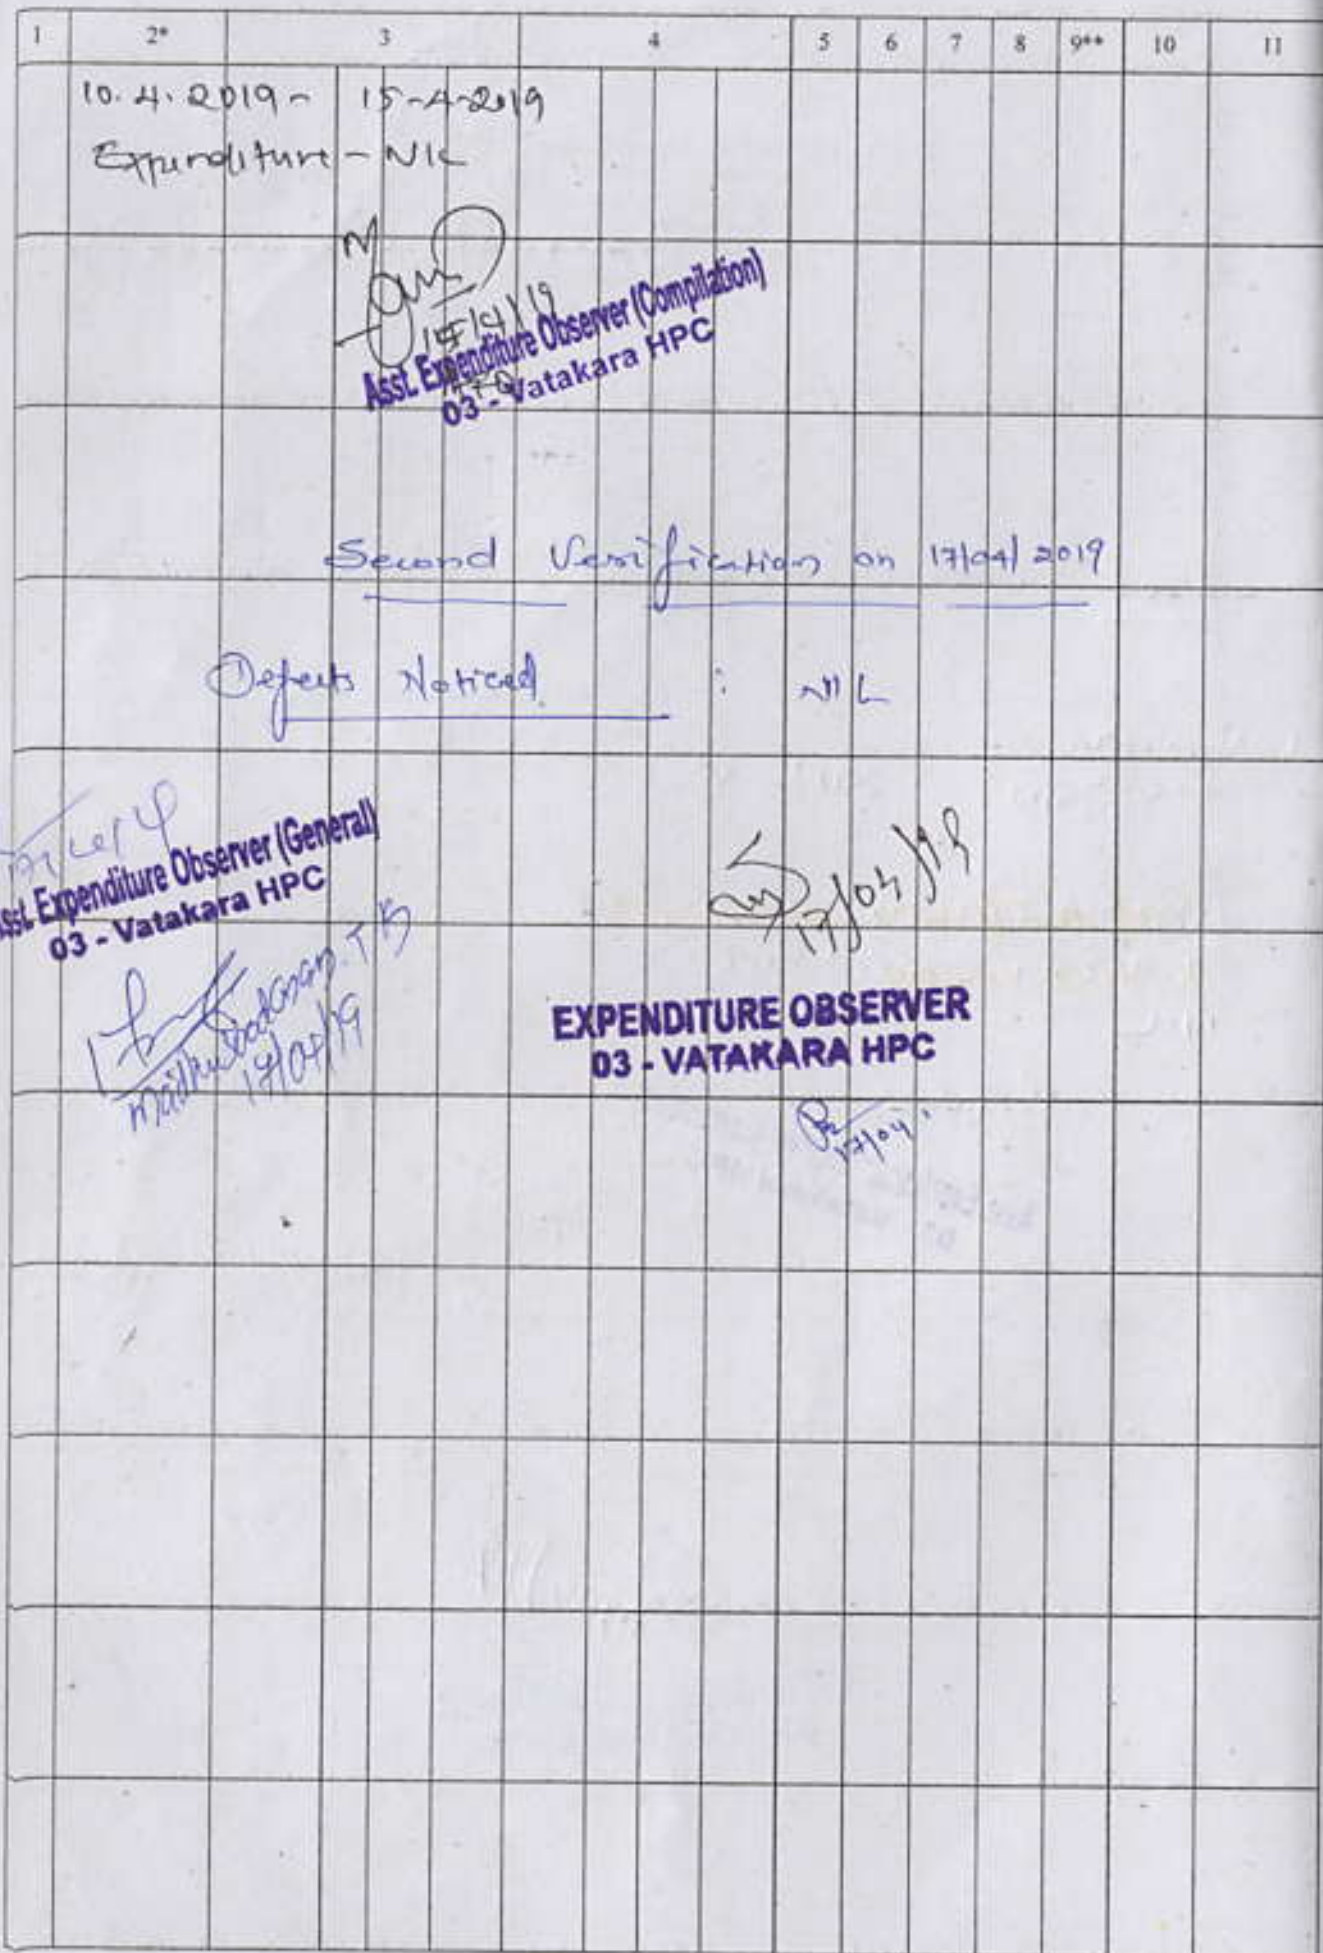 1 2* 3 4 5 6 7 8 9** 10 11
10.4.2019 - 15-4-2019
Expenditure - NIL
15/4/19
Asst. Expenditure Observer (Compilation)
03 - Vatakara HPC
Second Verification on 17/04/2019
Defects Noticed : NIL
Asst. Expenditure Observer (General)
03 - Vatakara HPC
17/04/19
Madhusoodanan. T K
17/04/19
EXPENDITURE OBSERVER
03 - VATAKARA HPC
17/04